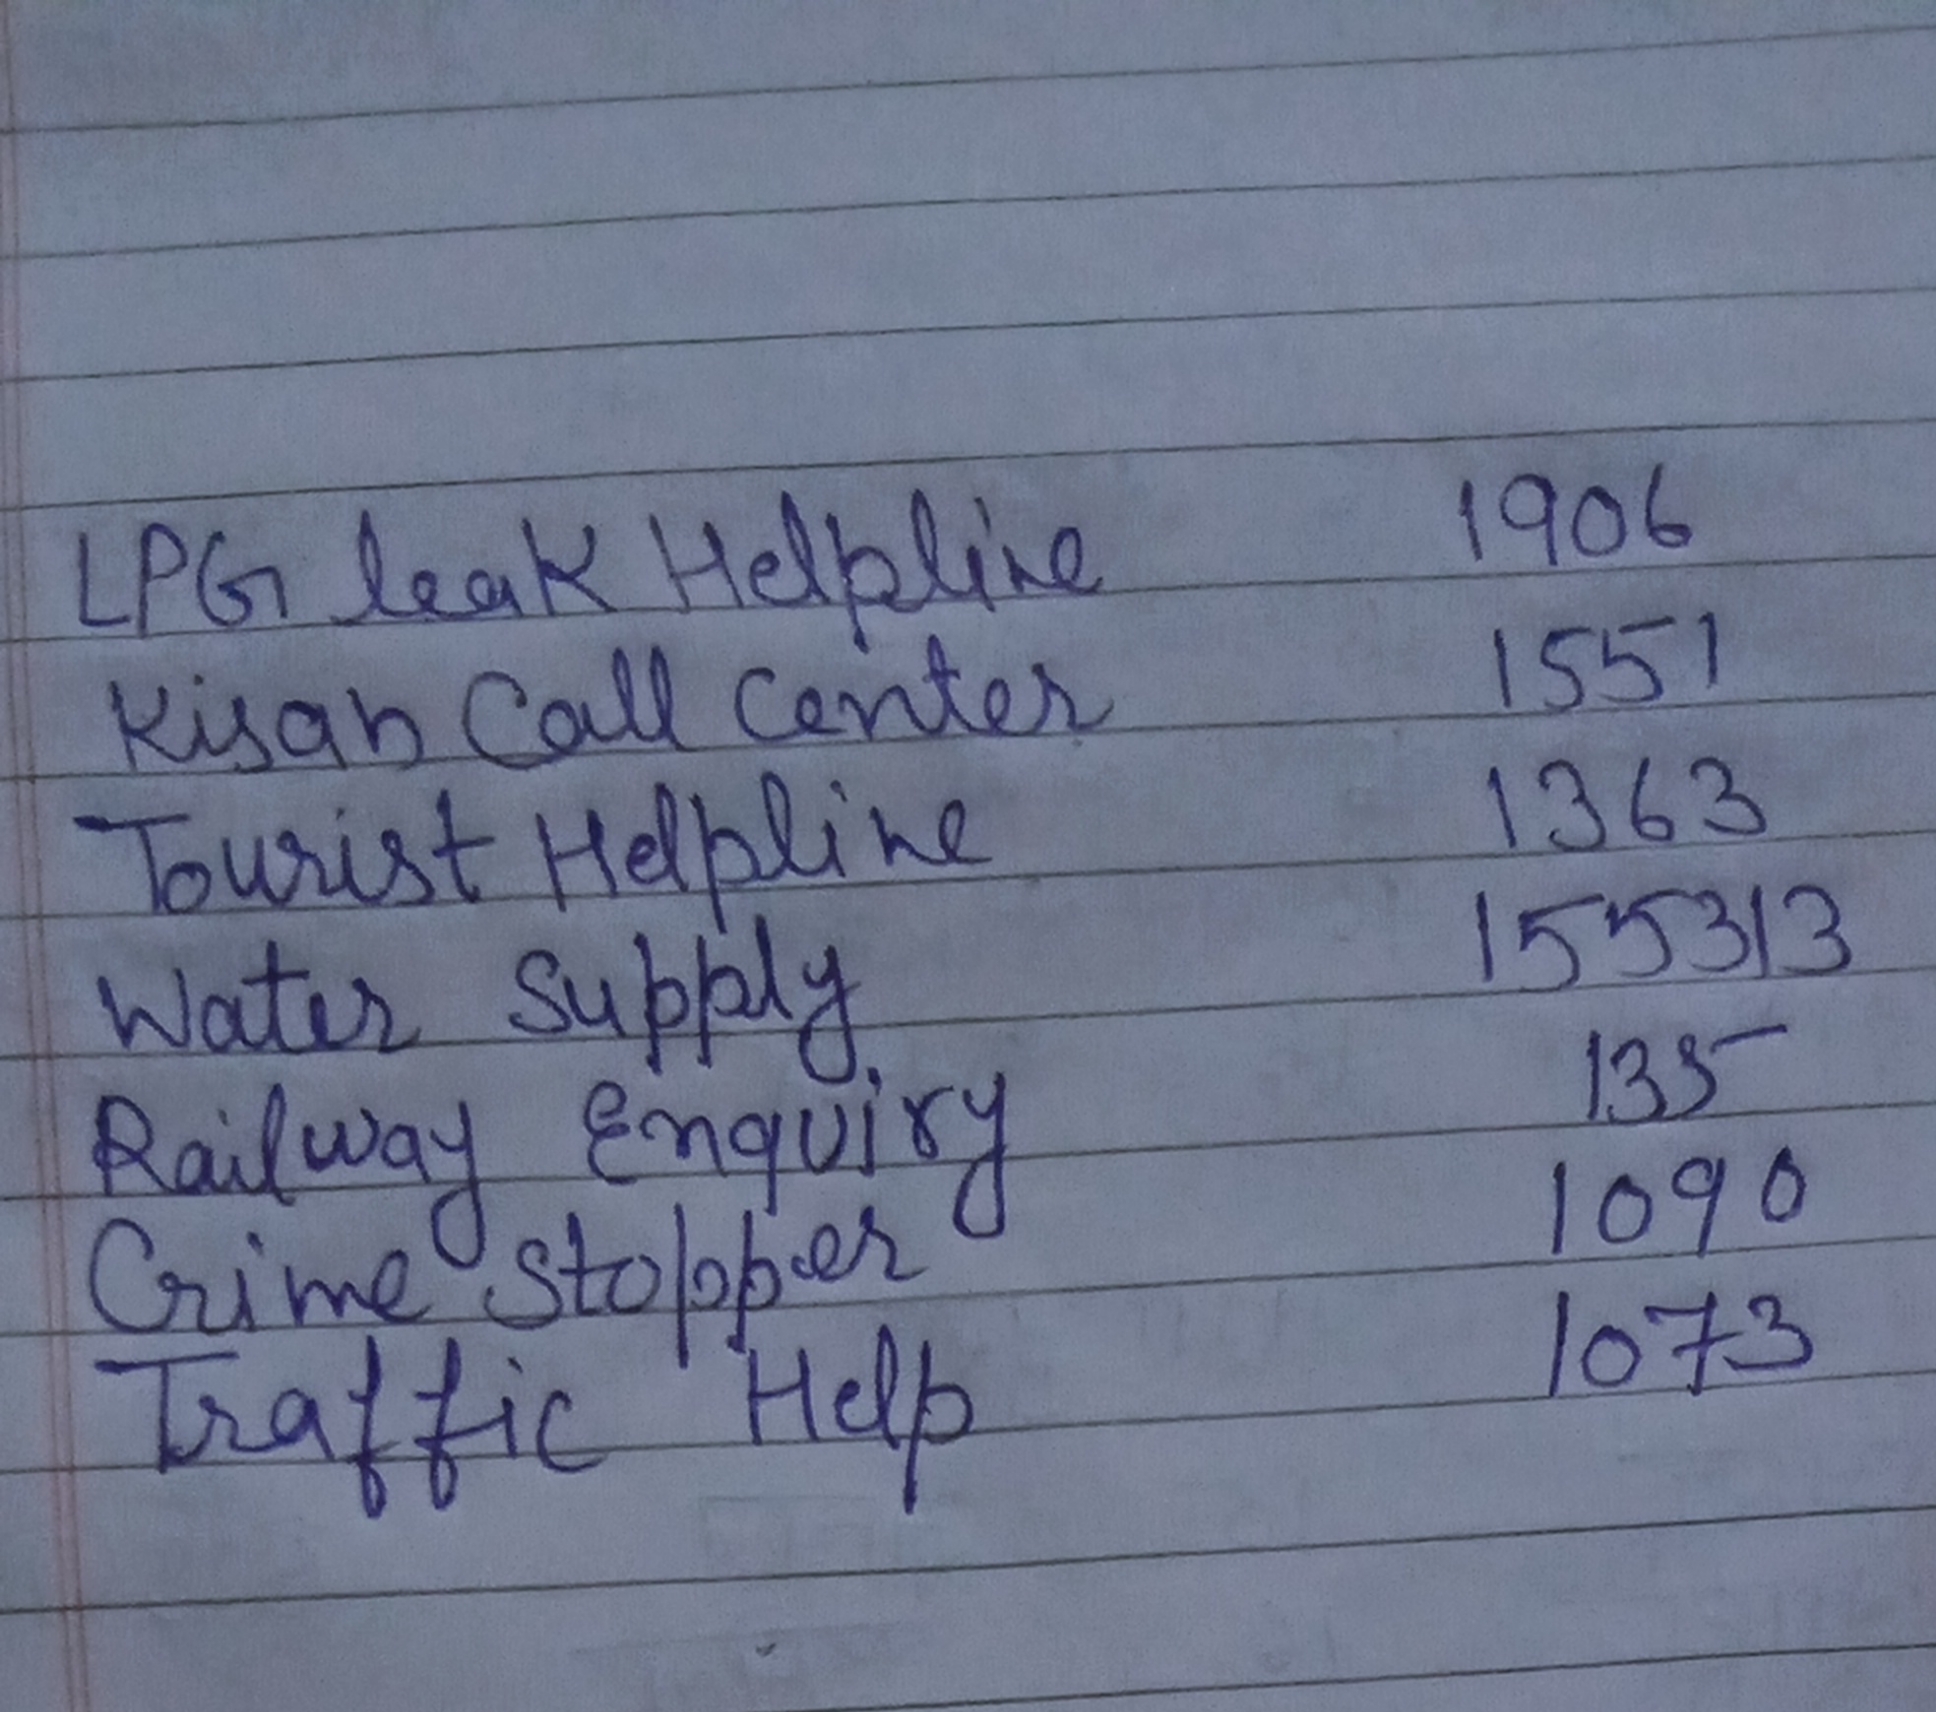 LPG leak Helpline 1906
Kisan Call Center 1551
Tourist Helpline 1363
Water Supply 155313
Railway Enquiry 135
Crime Stopper 1090
Traffic Help 1073